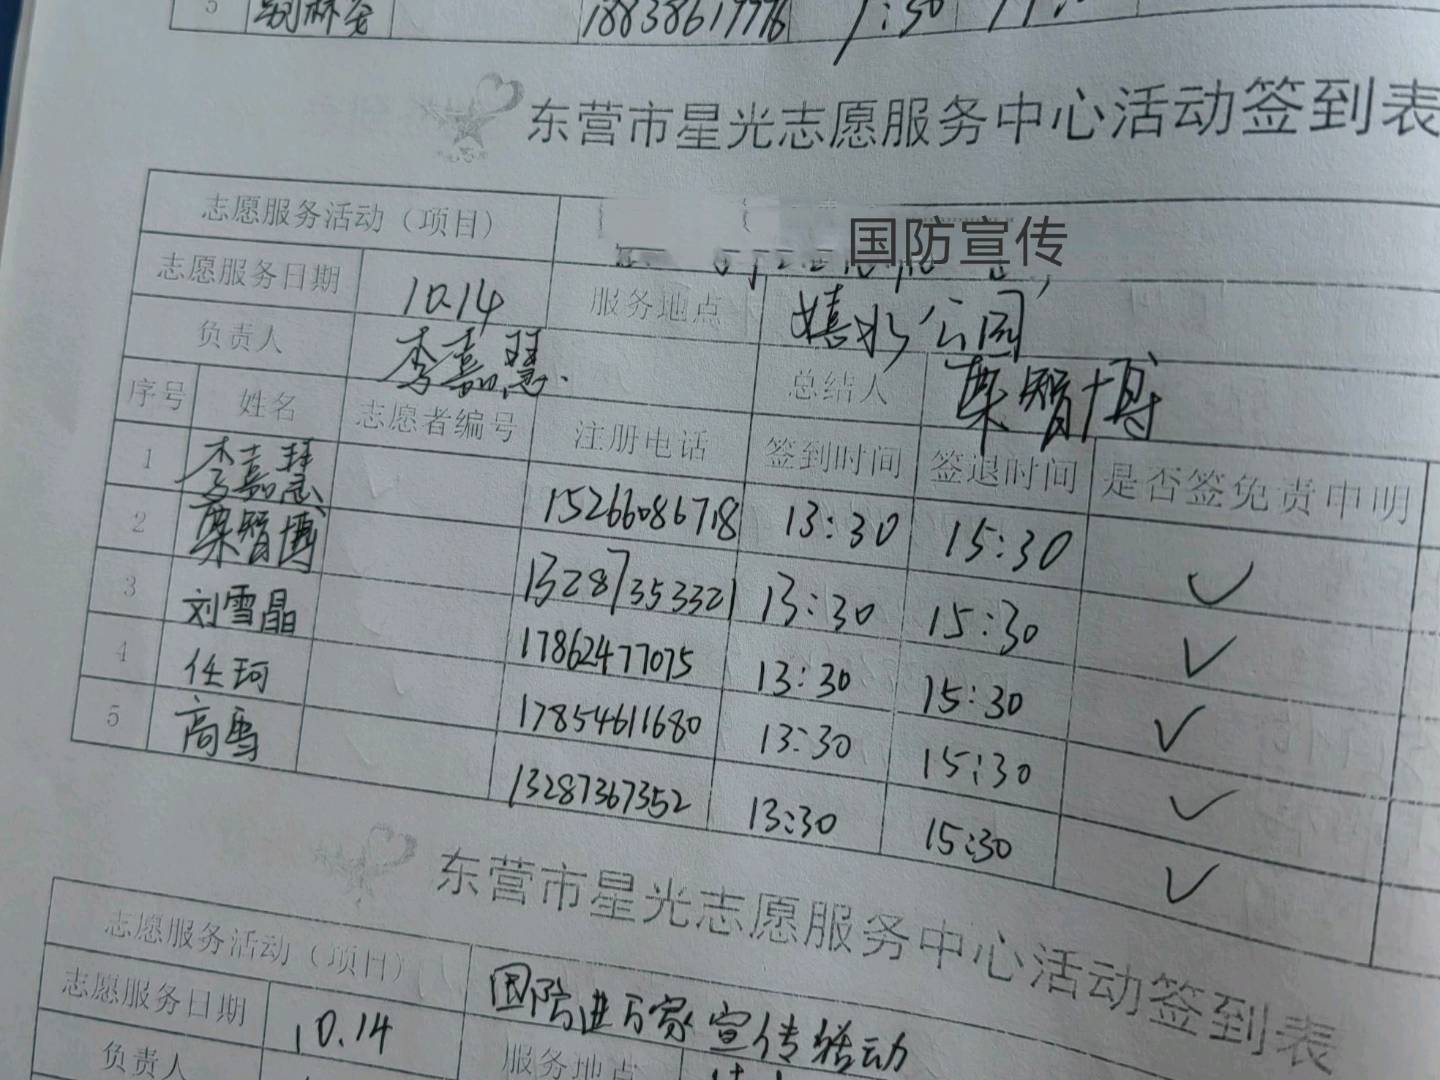 5 18838617776
东营市星光志愿服务中心活动签到表
志愿服务活动（项目） 国防宣传
志愿服务日期 10.14 服务地点 嬉水公园
负责人 李嘉慧 总结人 栗智博
序号 姓名 志愿者编号 注册电话 签到时间 签退时间 是否签免责申明
1 李嘉慧 15266086718 13:30 15:30 ✓
2 栗智博 13287353321 13:30 15:30 ✓
3 刘雪晶 17862477075 13:30 15:30 ✓
4 任珂 17854611680 13:30 15:30 ✓
5 高雪 13287367352 13:30 15:30 ✓
东营市星光志愿服务中心活动签到表
志愿服务活动（项目） 国防进万家宣传活动
志愿服务日期 10.14 服务地点
负责人